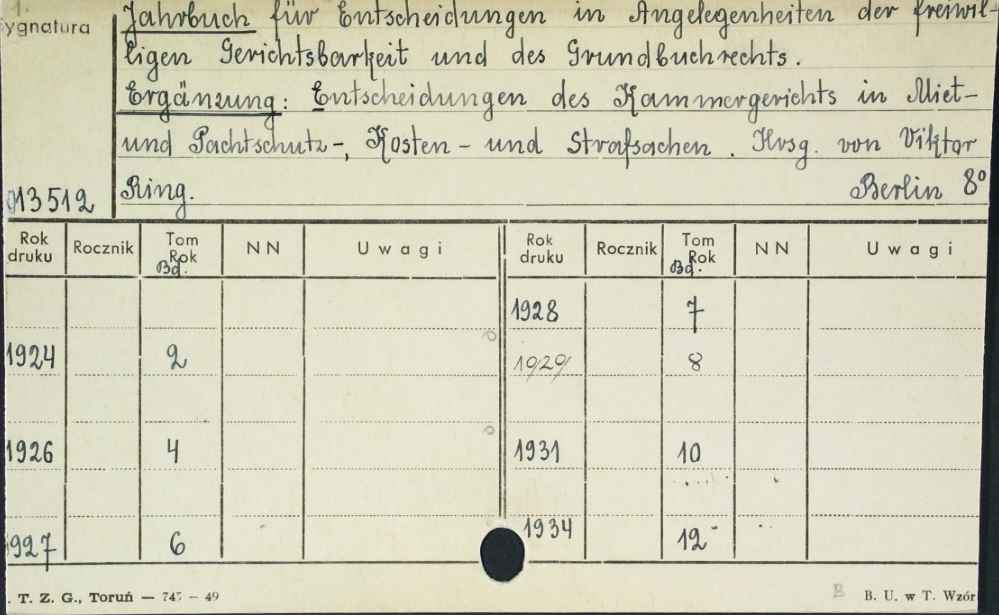 Sygnatura
Jahrbuch für Entscheidungen in Angelegenheiten der freiwil-
ligen Gerichtsbarkeit und des Grundbuchrechts.
Ergänzung: Entscheidungen des Kammergerichts in Miet-
und Pachtschutz-, Kosten- und Strafsachen. Hrsg. von Viktor
Ring. Berlin 8°
013512
Rok druku Rocznik Tom Rok Bd. NN Uwagi Rok druku Rocznik Tom Rok Bd. NN Uwagi
1928 7
1924 2 1929 8
1926 4 1931 10
1927 6 1934 12
T. Z. G., Toruń — 745 — 49 B B. U. w T. Wzór